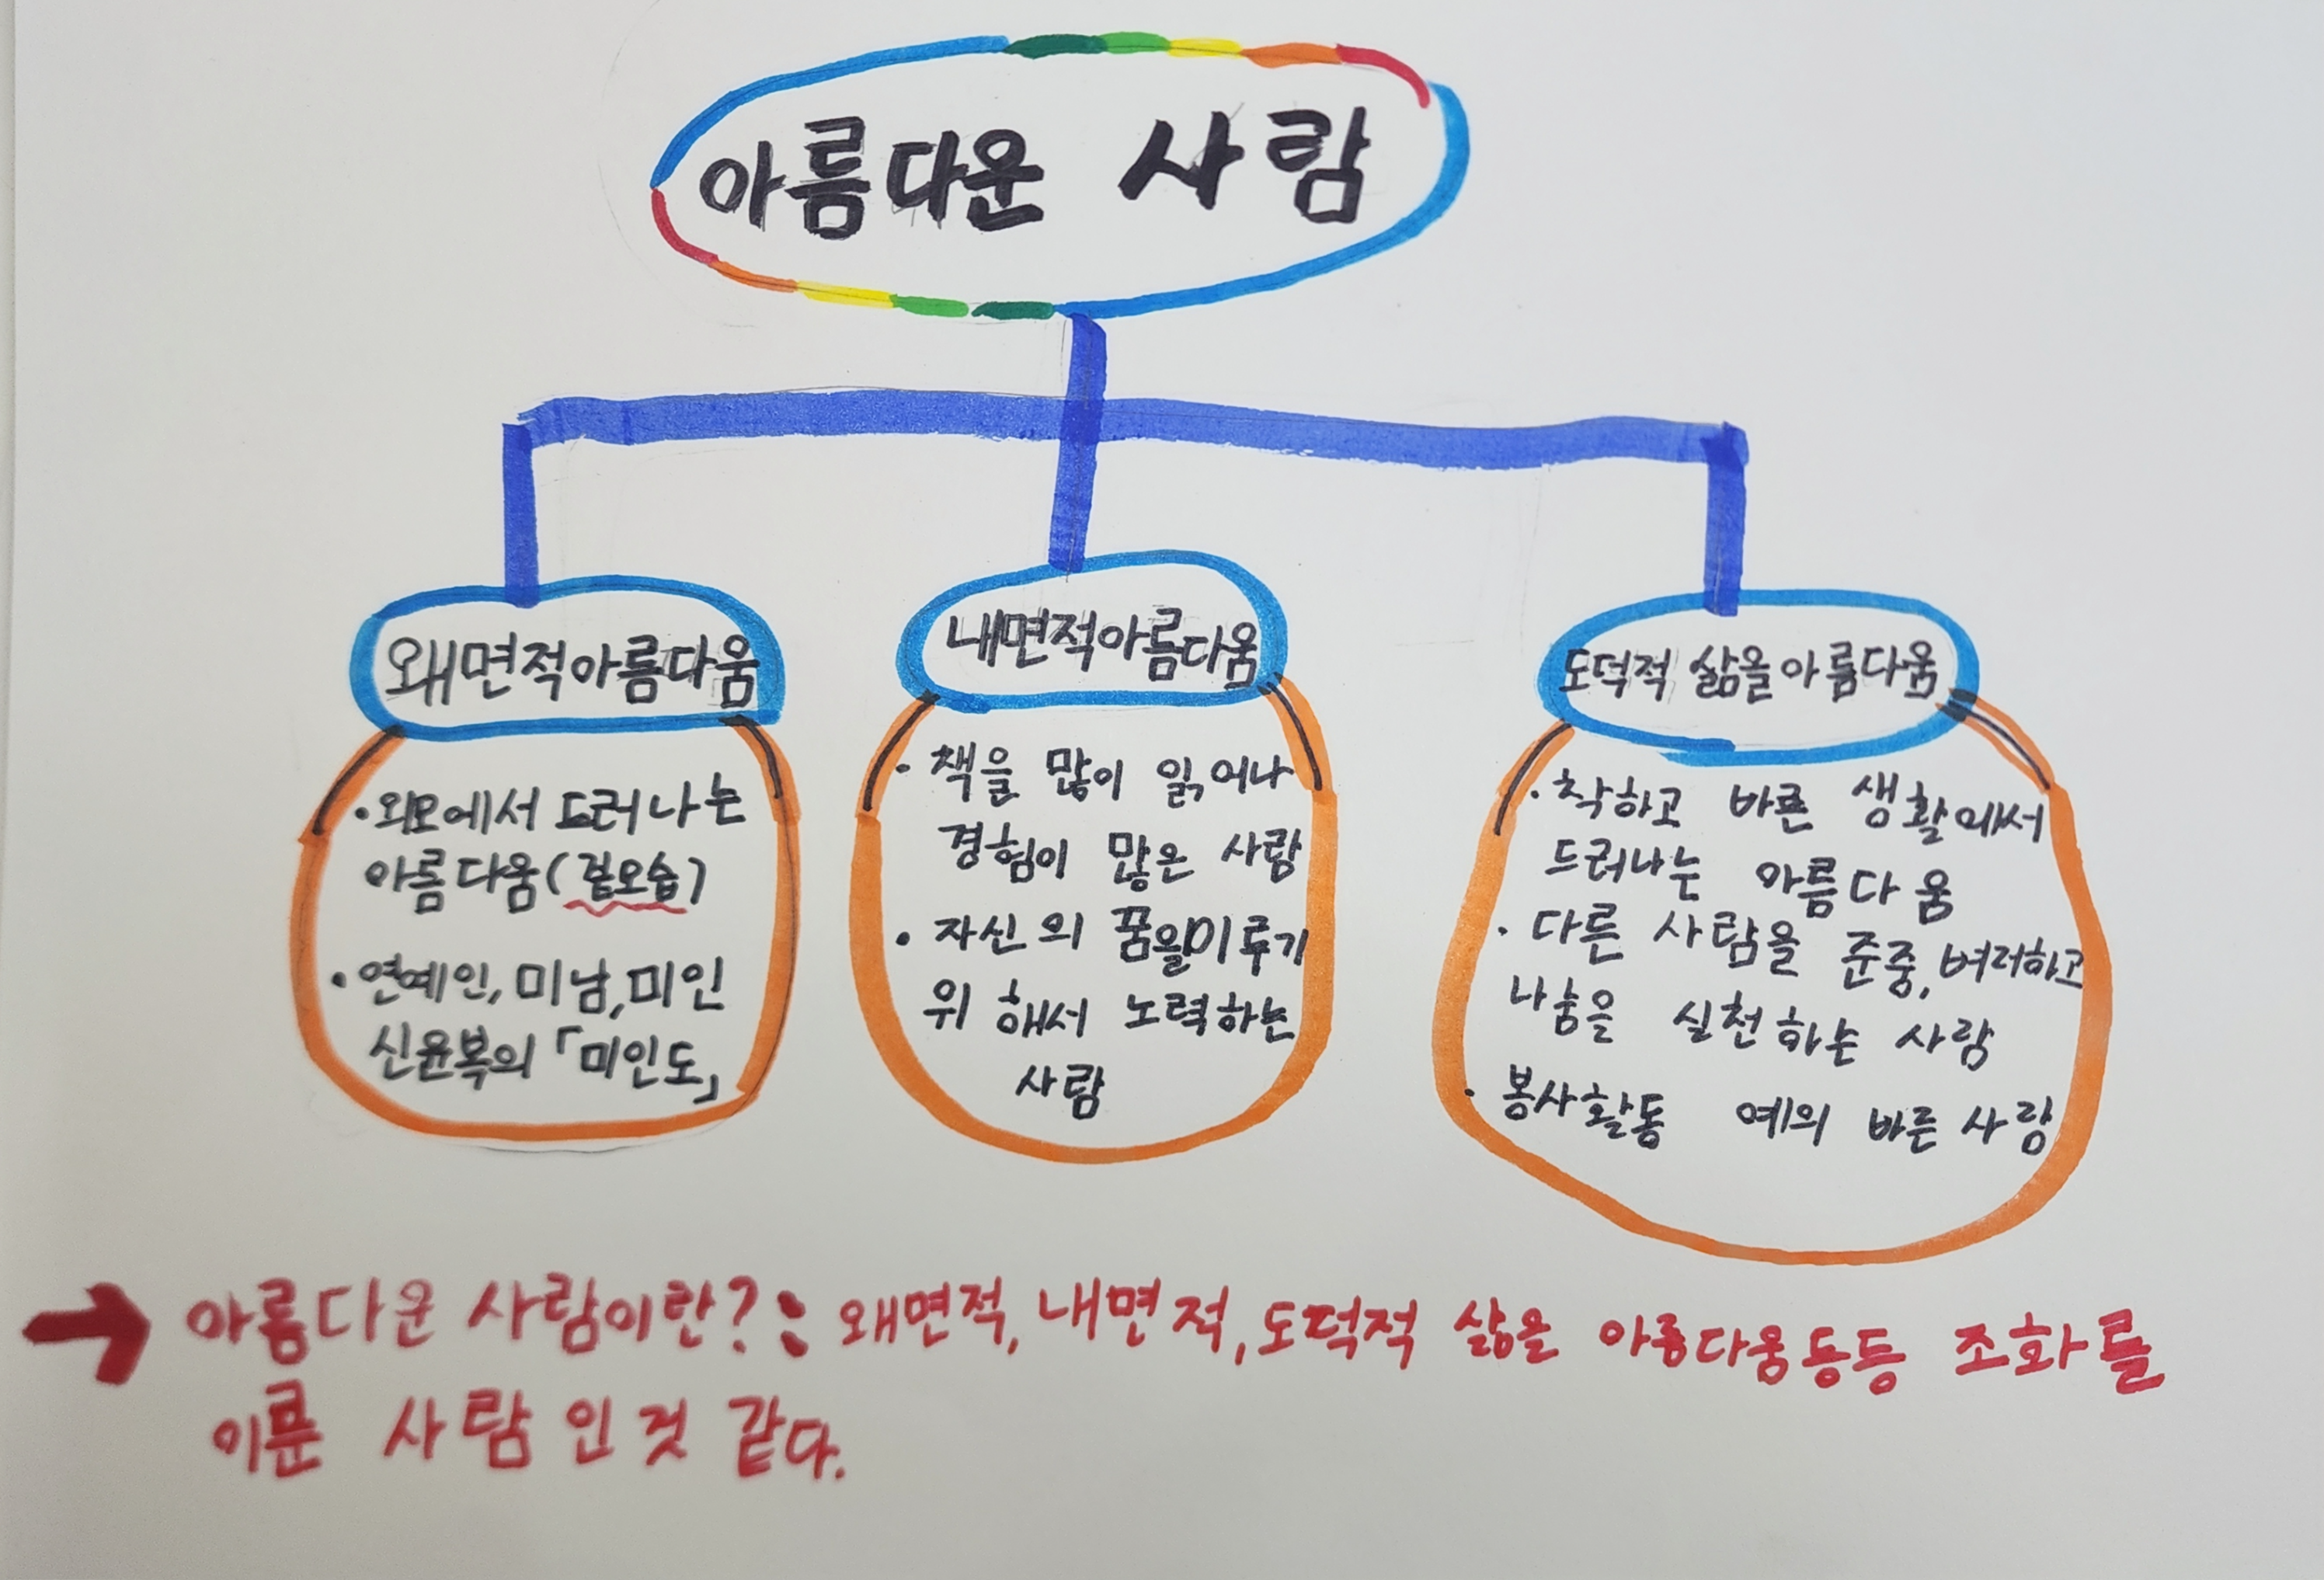 아름다운 사람
왜면적아름다움
·외모에서 드러나는
아름다움(겉모습)
·연예인, 미남, 미인
신윤복의 「미인도」
내면적아름다움
·책을 많이 읽어나
경험이 많은 사람
·자신의 꿈을미루기
위 해서 노력하는
사람
도덕적 삶을아름다움
·착하고 바른 생활에서
드러나는 아름다움
·다른 사람을 준중, 벼려하고
나눔을 실천하는 사람
·봉사활동 예의 바른 사람
→ 아름다운 사람이란?: 왜면적, 내면적, 도덕적 삶을 아름다움등등 조화를
이룬 사람인것 같다.